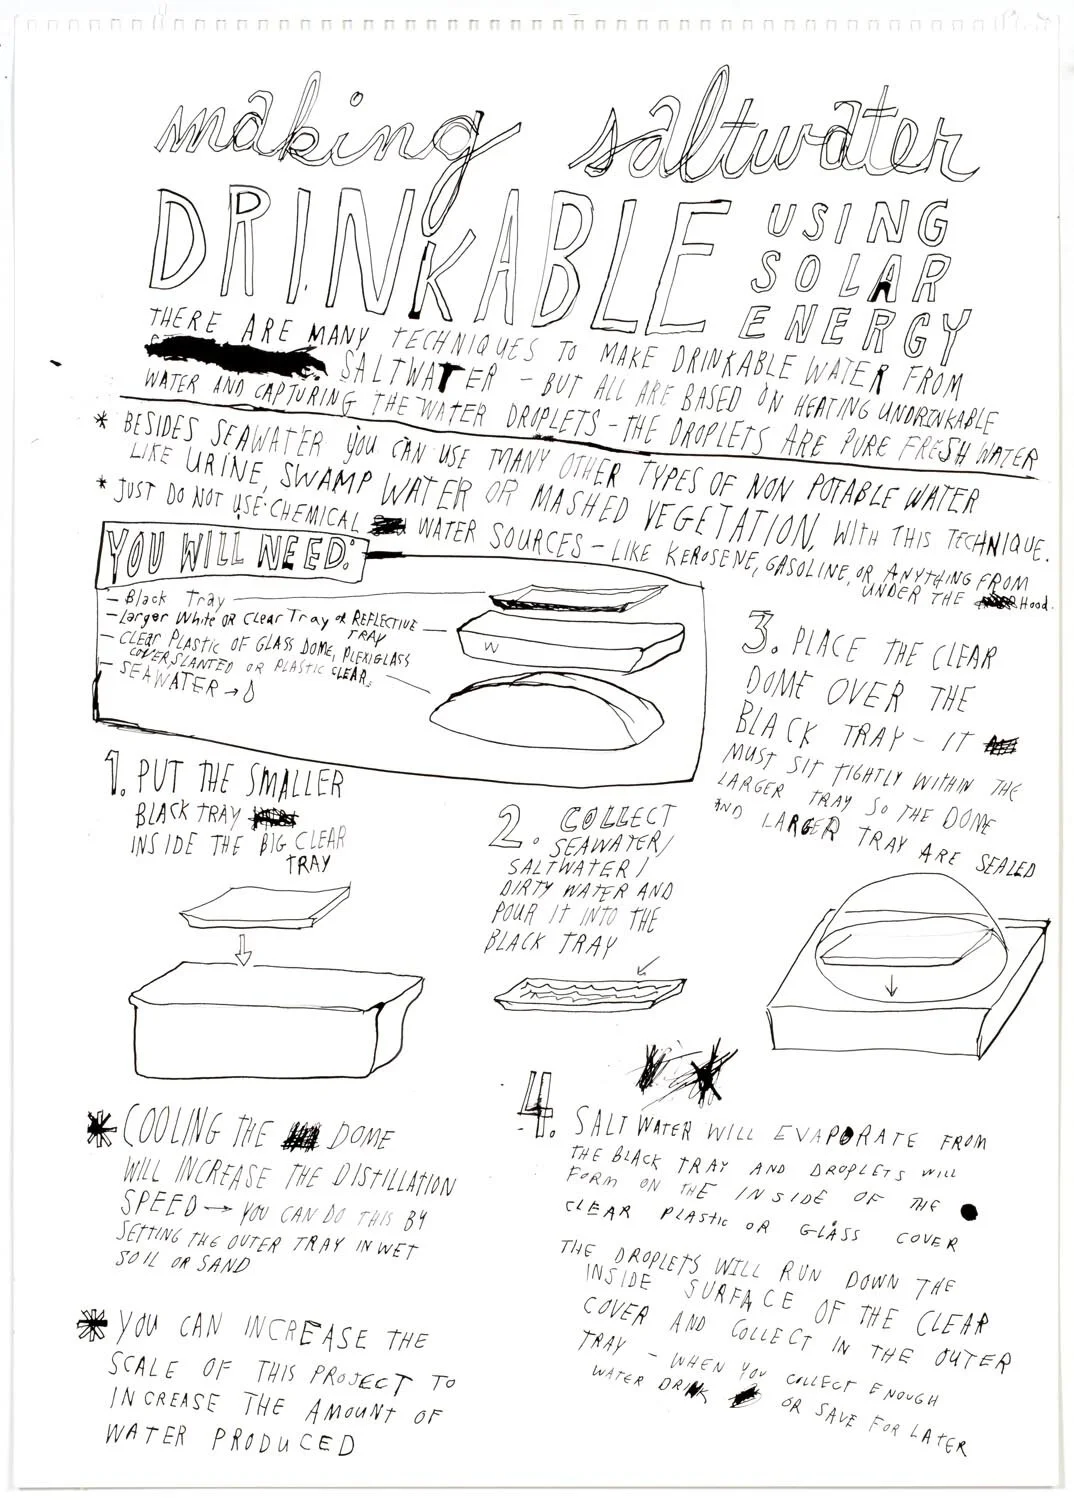 making saltwater
DRINKABLE
USING
SOLAR
ENERGY
THERE ARE MANY TECHNIQUES TO MAKE DRINKABLE WATER FROM
SALTWATER - BUT ALL ARE BASED ON HEATING UNDRINKABLE
WATER AND CAPTURING THE WATER DROPLETS - THE DROPLETS ARE PURE FRESH WATER
* BESIDES SEAWATER YOU CAN USE MANY OTHER TYPES OF NON POTABLE WATER
LIKE URINE, SWAMP WATER OR MASHED VEGETATION, WITH THIS TECHNIQUE.
* JUST DO NOT USE CHEMICAL WATER SOURCES - LIKE KEROSENE, GASOLINE, OR ANYTHING FROM
UNDER THE Hood.
YOU WILL NEED:
- Black Tray
- Larger White OR Clear Tray OR REFLECTIVE
TRAY
- CLEAR PLASTIC OF GLASS DOME, PLEXIGLASS
COVER, SLANTED OR PLASTIC CLEAR.
- SEAWATER →
W
1. PUT THE SMALLER
BLACK TRAY
INSIDE THE BIG CLEAR
TRAY
2. COLLECT
SEAWATER/
SALTWATER/
DIRTY WATER AND
POUR IT INTO THE
BLACK TRAY
3. PLACE THE CLEAR
DOME OVER THE
BLACK TRAY - IT
MUST SIT TIGHTLY WITHIN THE
LARGER TRAY SO THE DOME
AND LARGER TRAY ARE SEALED
* COOLING THE DOME
WILL INCREASE THE DISTILLATION
SPEED → YOU CAN DO THIS BY
SETTING THE OUTER TRAY IN WET
SOIL OR SAND
* YOU CAN INCREASE THE
SCALE OF THIS PROJECT TO
INCREASE THE AMOUNT OF
WATER PRODUCED
4. SALT WATER WILL EVAPORATE FROM
THE BLACK TRAY AND DROPLETS WILL
FORM ON THE INSIDE OF THE
CLEAR PLASTIC OR GLASS COVER
THE DROPLETS WILL RUN DOWN THE
INSIDE SURFACE OF THE CLEAR
COVER AND COLLECT IN THE OUTER
TRAY - WHEN YOU COLLECT ENOUGH
WATER DRINK OR SAVE FOR LATER